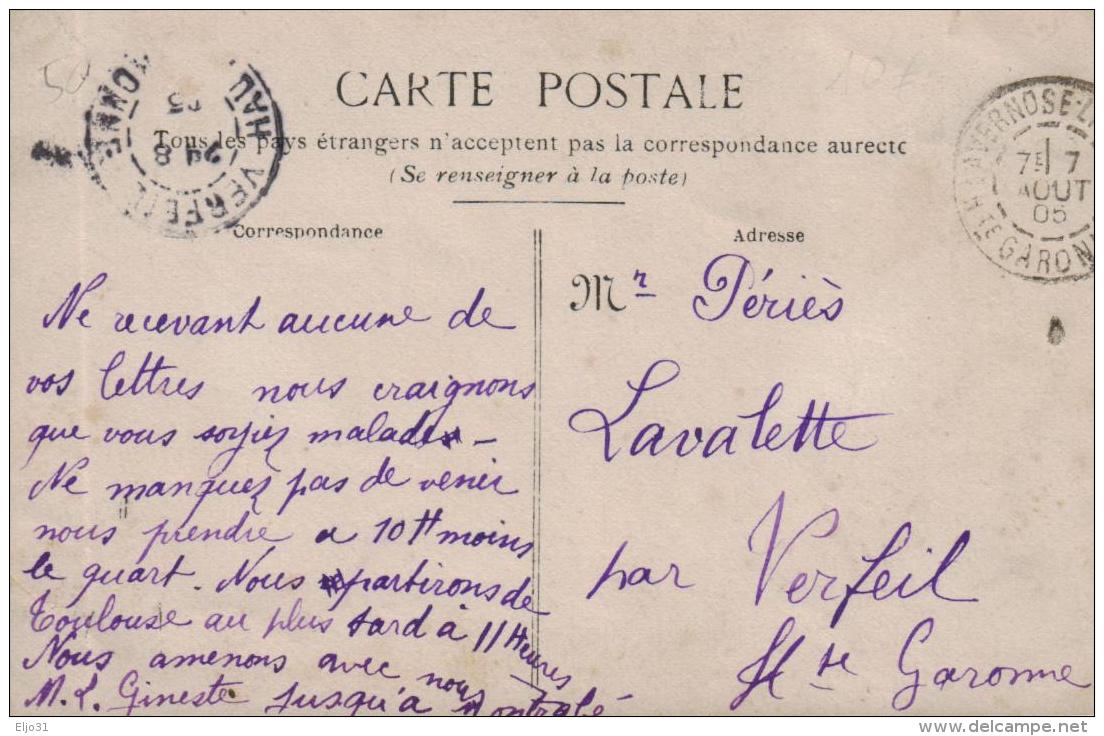 CARTE POSTALE
Tous les pays étrangers n'acceptent pas la correspondance au recto
(Se renseigner à la poste)
Correspondance
Ne recevant aucune de
vos lettres nous craignons
que vous soyiez malade -
Ne manquez pas de venir
nous prendre a 10 H moins
le quart. Nous partirons de
Toulouse au plus tard à 11 Heures
Nous amenons avec nous
M. L. Gineste jusqu'à Montrabé
Adresse
Mr Périès
Lavalette
par Verfeil
Hte Garonne
VERFEIL
HAU ONNE
24 8
05
LAVERNOSE-L
Hte GARON
7E 7
AOUT
05
50
Eljo31
delcampe.net